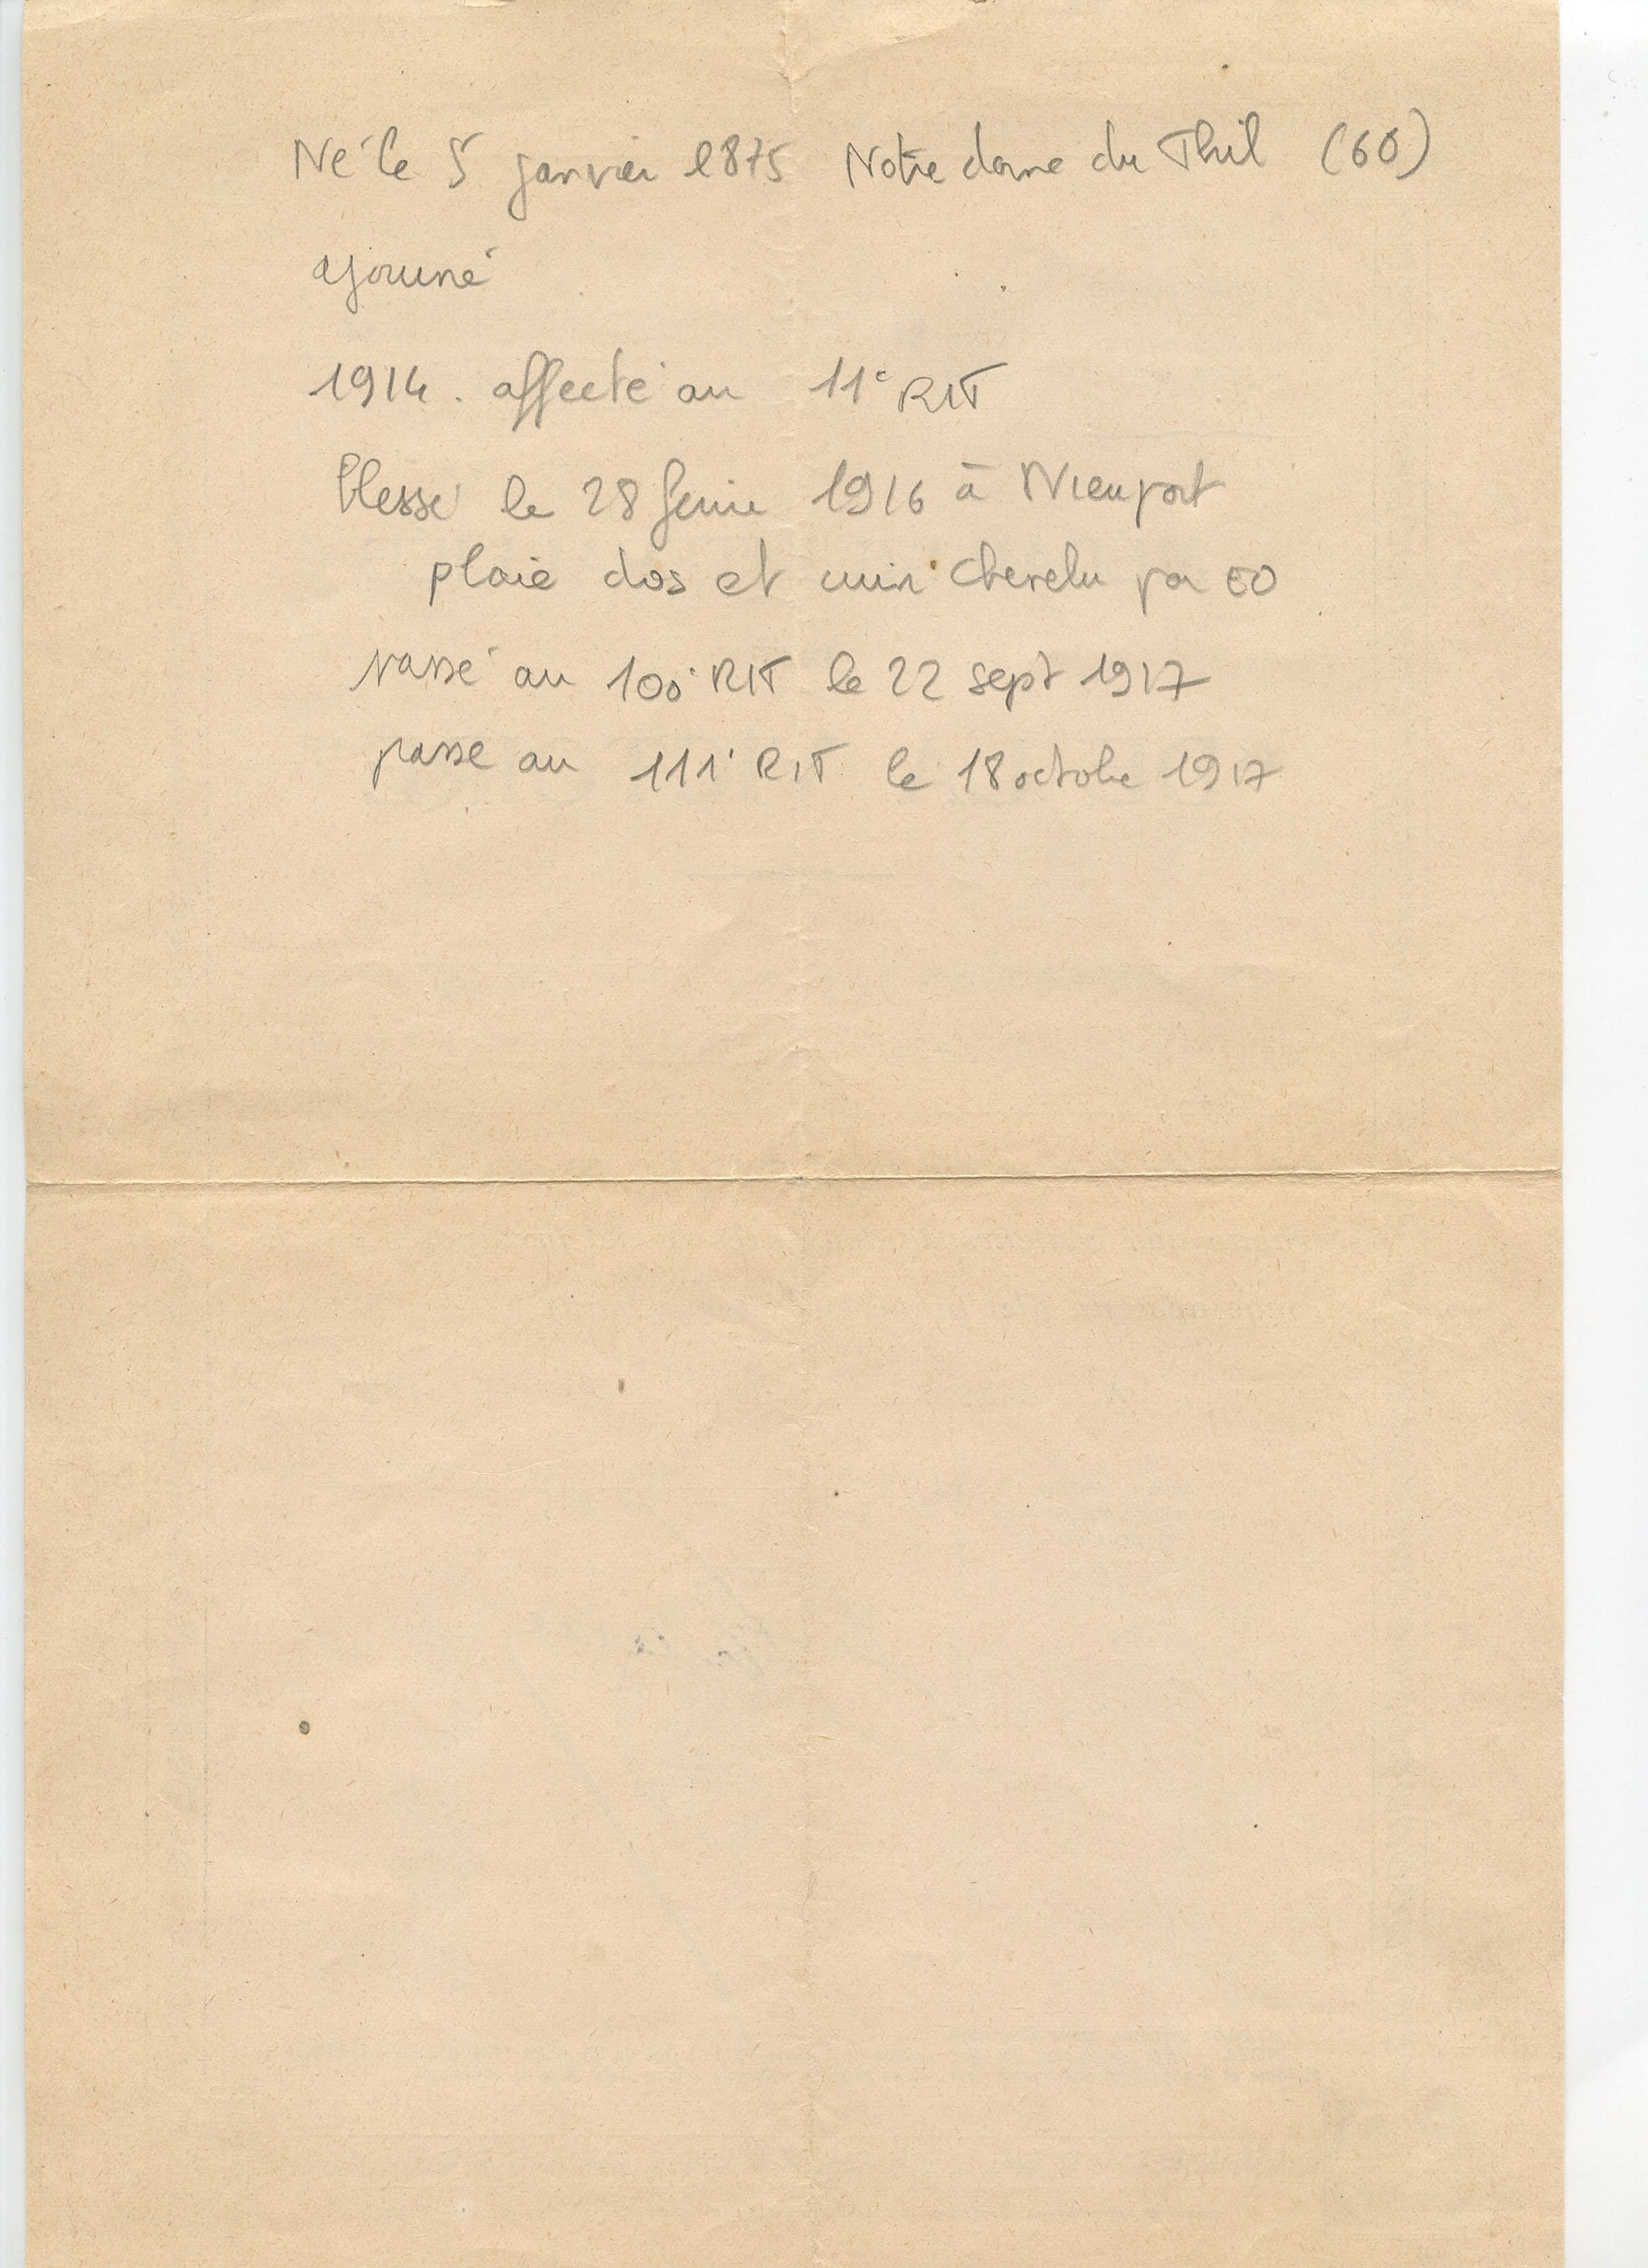 Né le 5 janvier 1875 Notre dame du Thil (60)
ajourné
1914. affecté au 11e RIT
blessé le 28 février 1916 à Nieuport
plaie dos et cuir chevelu par EO
passé au 100e RIT le 22 sept 1917
passe au 111e RIT le 18 octobre 1917